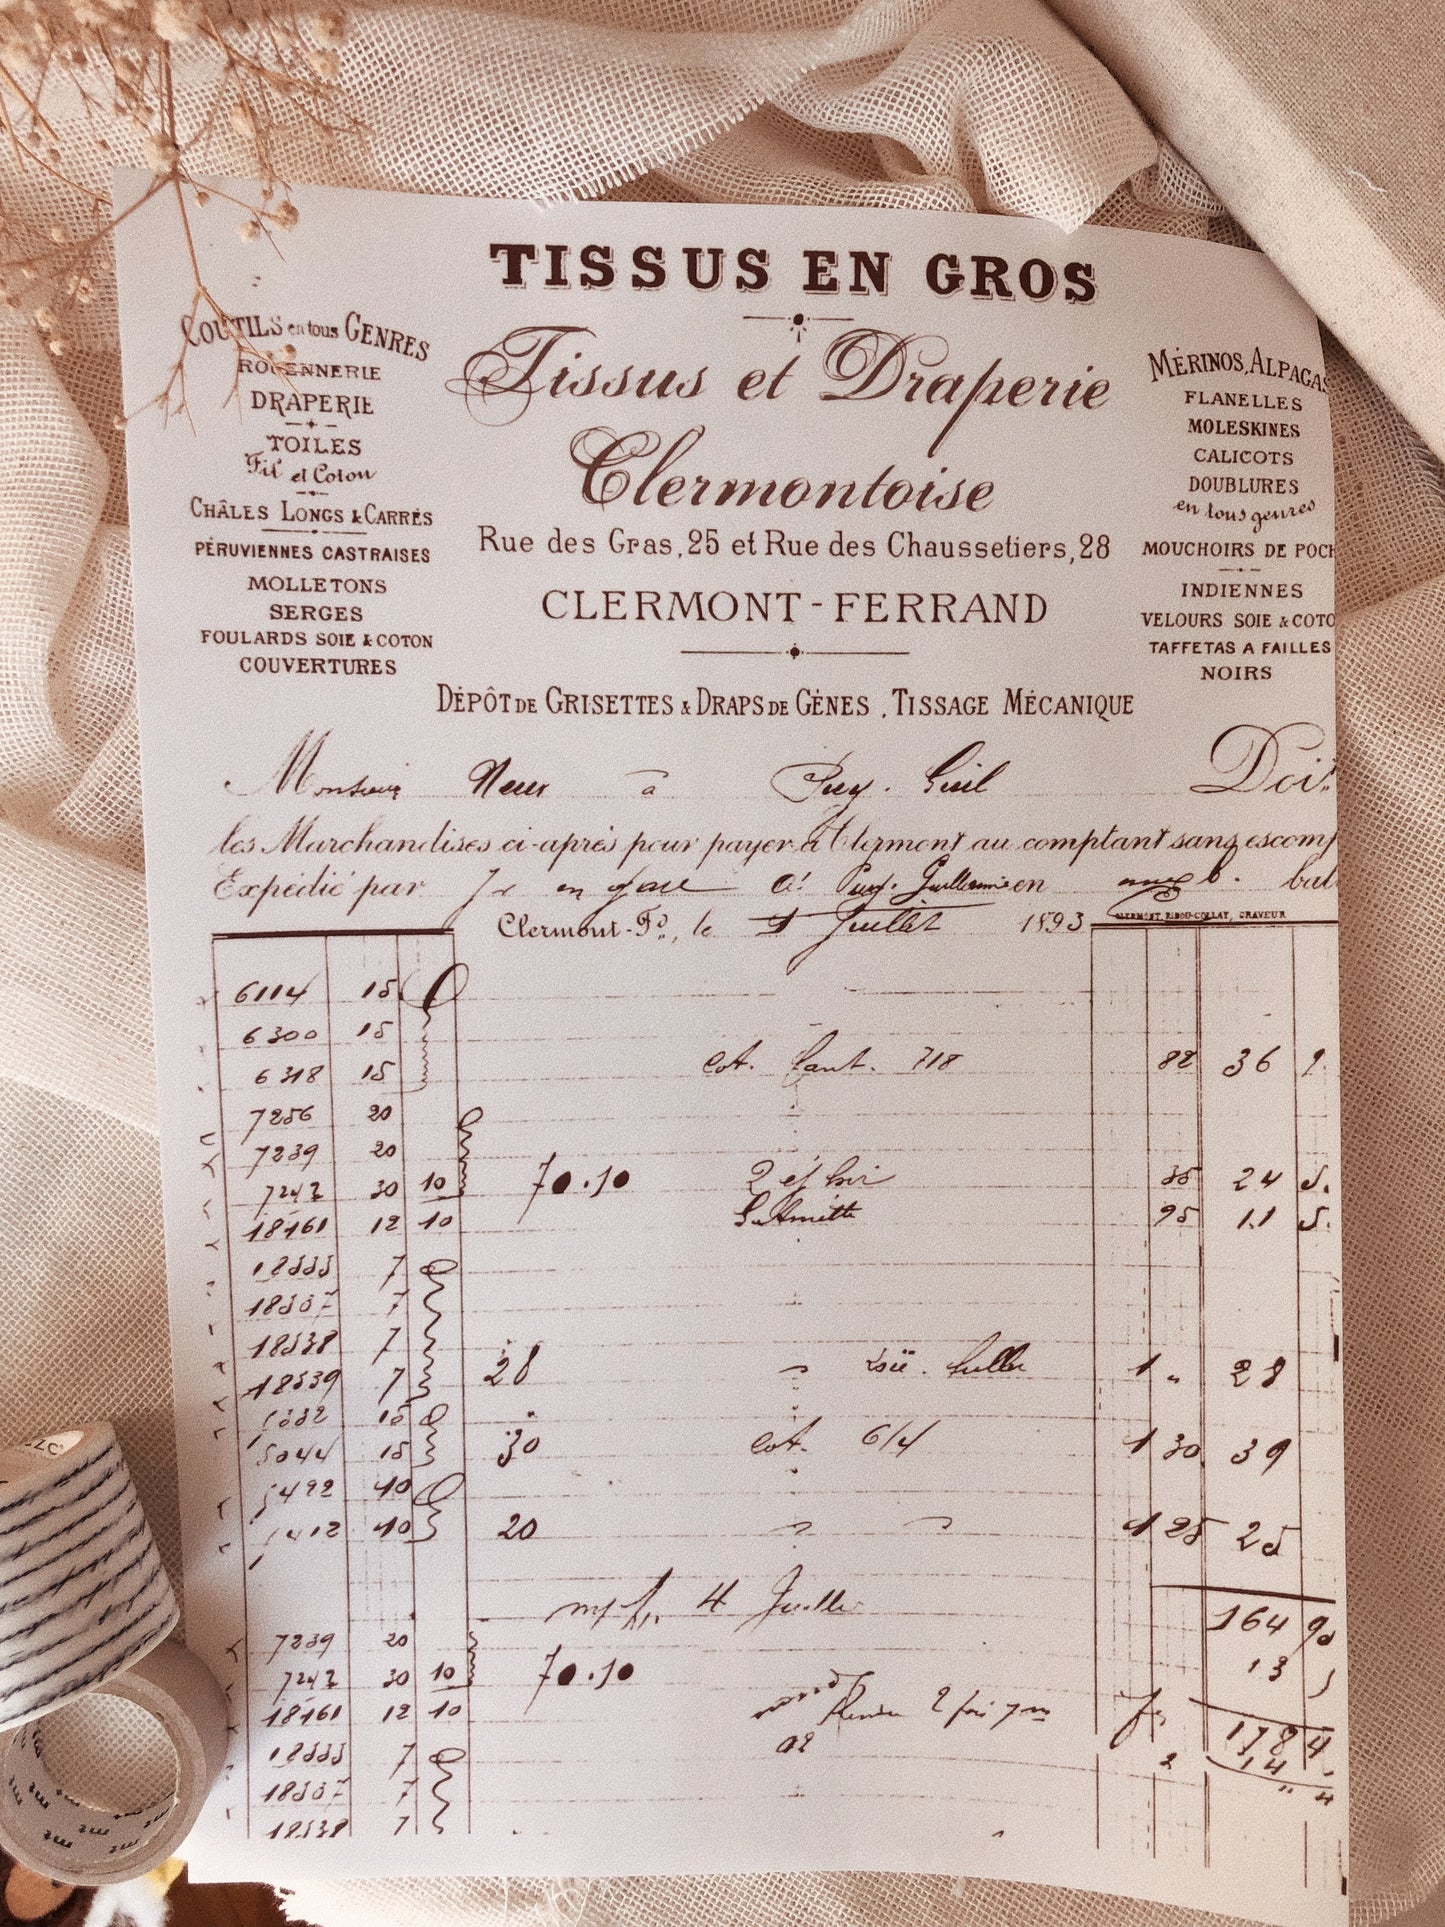 TISSUS EN GROS
Tissus et Draperie
Clermontoise
Rue des Gras, 25 et Rue des Chaussetiers, 28
CLERMONT-FERRAND
DÉPÔT DE GRISETTES & DRAPS DE GÊNES. TISSAGE MÉCANIQUE
COUTILS en tous GENRES
ROUENNERIE
DRAPERIE
TOILES
Fil et Coton
CHÂLES LONGS & CARRÉS
PÉRUVIENNES CASTRAISES
MOLLETONS
SERGES
FOULARDS SOIE & COTON
COUVERTURES
MÉRINOS, ALPAGAS
FLANELLES
MOLESKINES
CALICOTS
DOUBLURES
en tous genres
MOUCHOIRS DE POCH
INDIENNES
VELOURS SOIE & COTO
TAFFETAS A FAILLES
NOIRS
Monsieur Neur à Puy. Guil Doit
les Marchandises ci-après pour payer à Clermont au comptant sans escomp
Expédié par en gare Puy. Guillaume en bal
CLERMONT, RIBOU-COLLAY, GRAVEUR
Clermont-Fd., le 1 Juillet 1893
6114 15
6300 15
6318 15 cot. 718 82 36 9
7256 20
7239 20
7242 30 10 70.10 35 24 5.
18161 12 10 95 11 5.
18333 7
18307 7
18338 7
18339 7 28 1 " 28
1332 15
5044 15 30 cot. 6/4 1 30 39
1492 10
1412 10 20 1 25 25
4 Juillet 164 90
7239 20 13
7242 30 10 70.10
18161 12 10 2 178 4
18333 7 02 2 14
18307 7
18338 7
mt mt mt